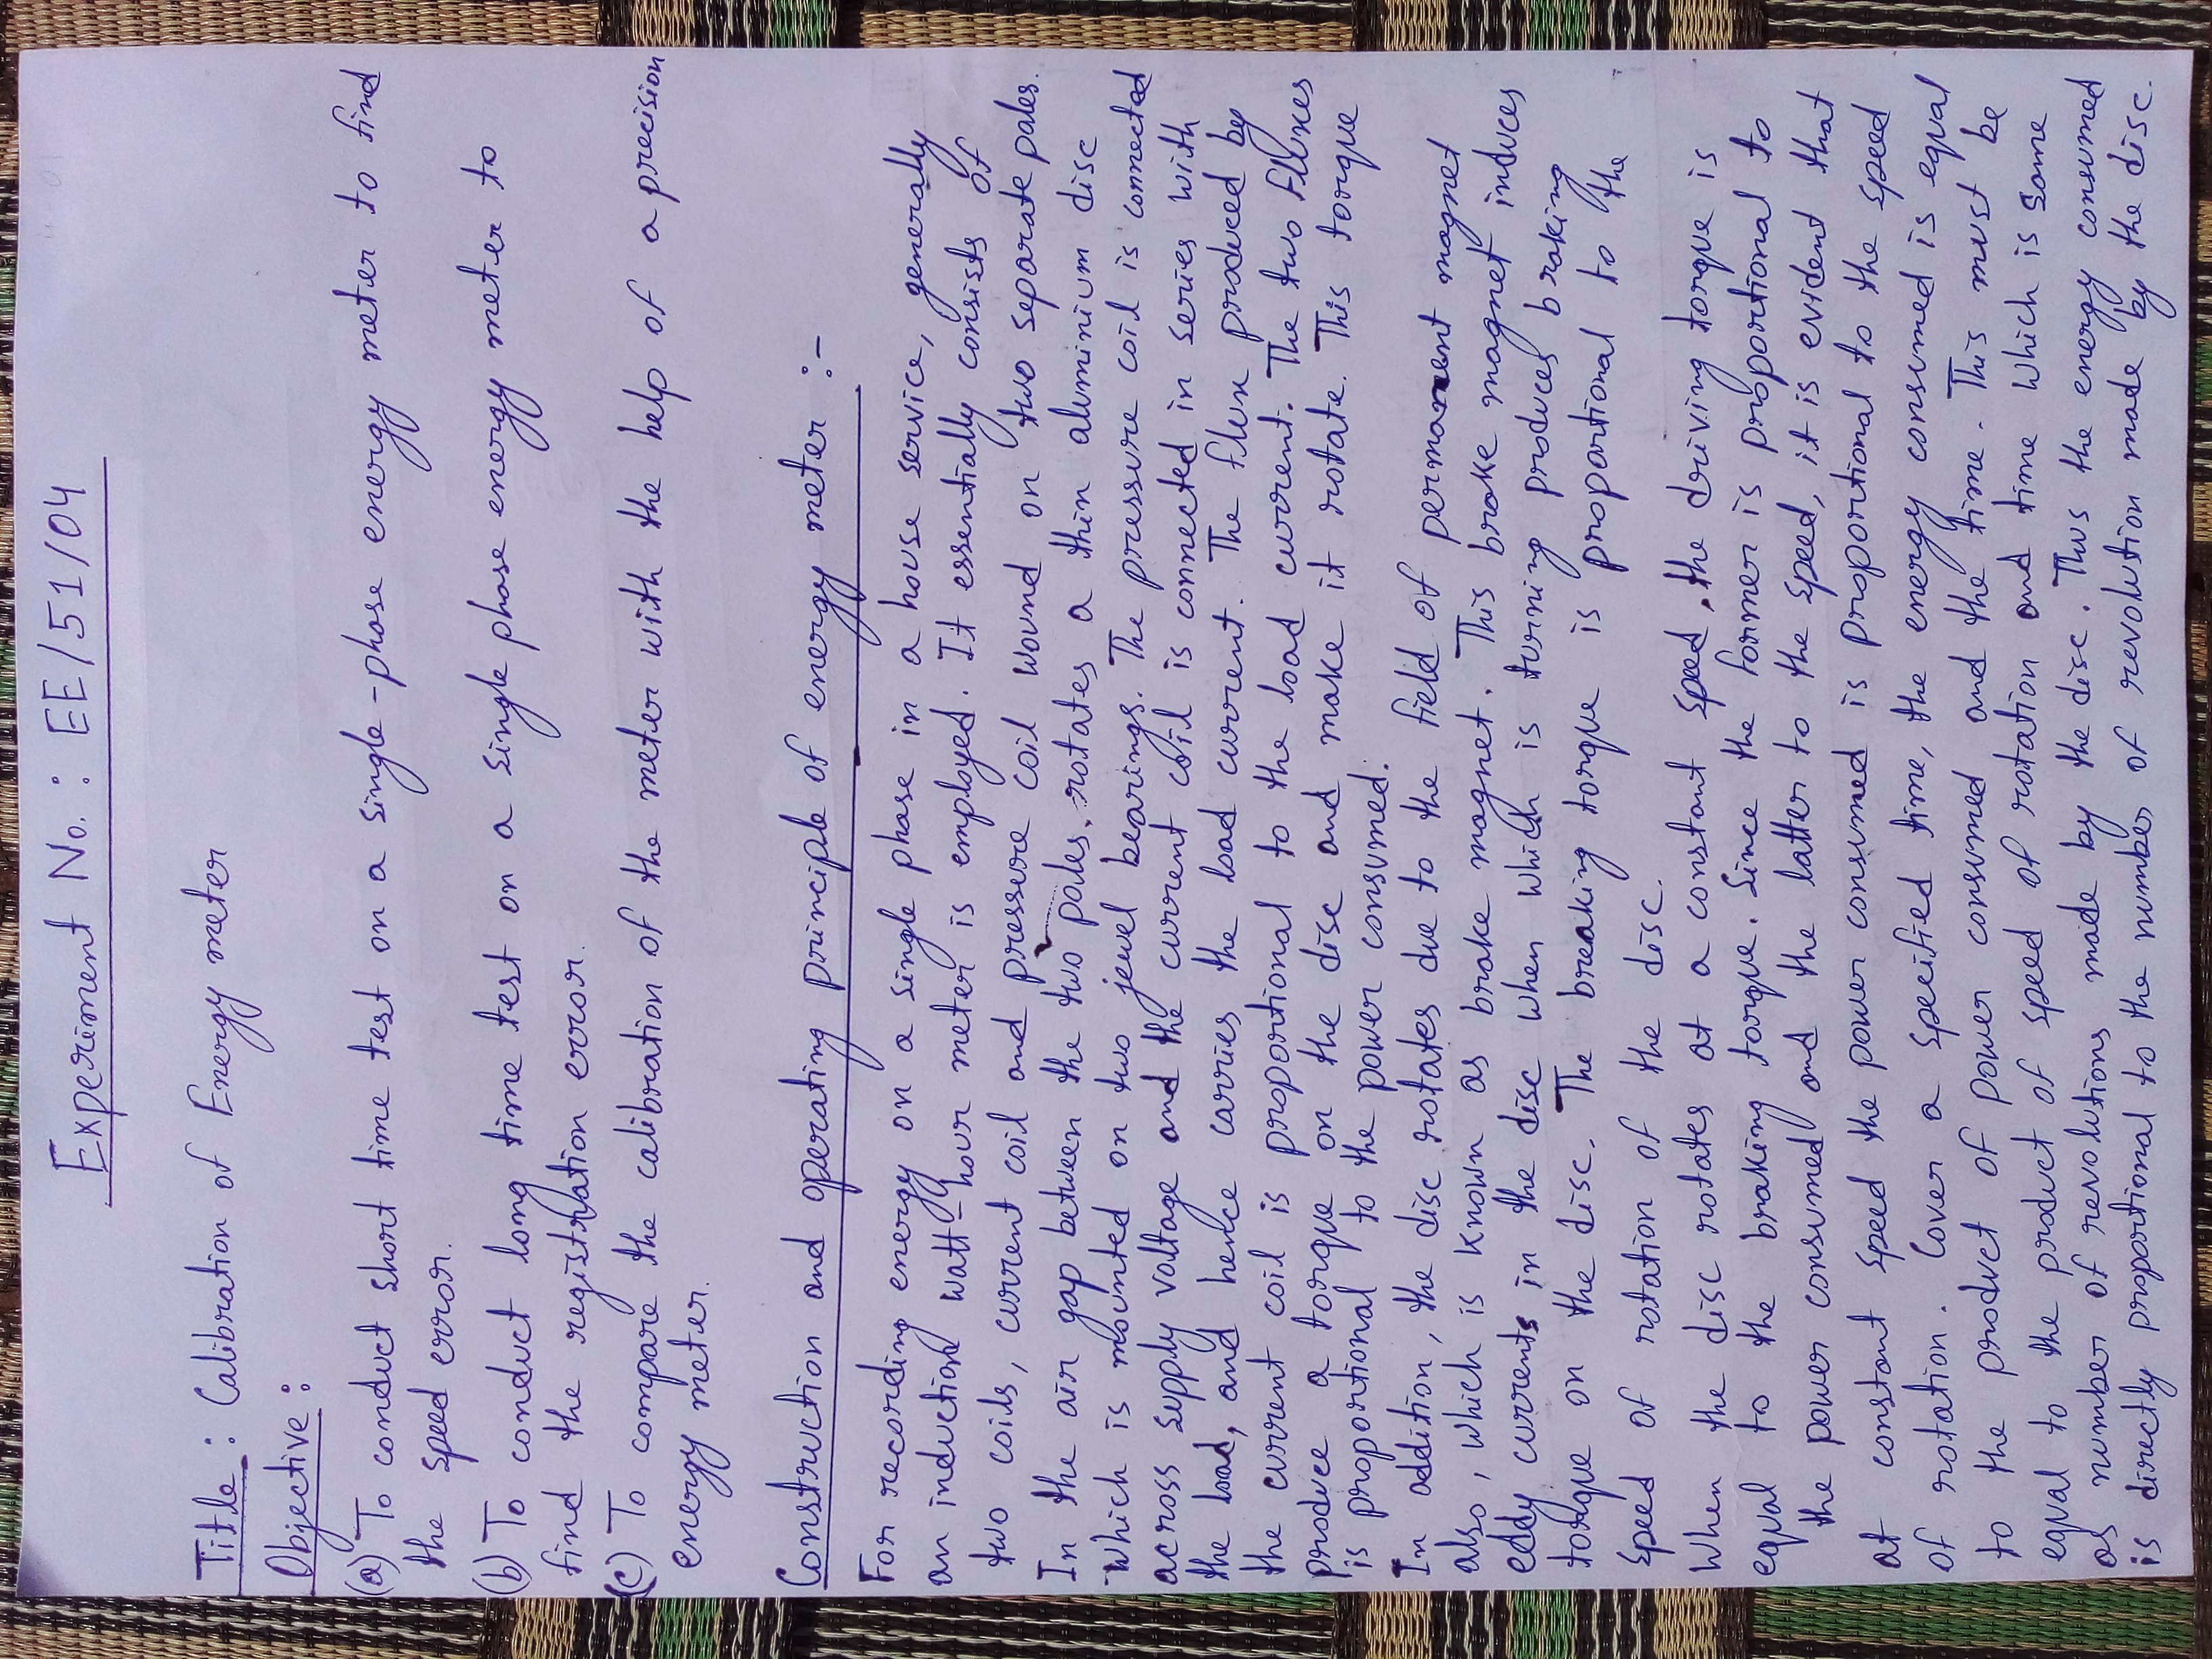 Experiment No. : EE/51/04
Title : Calibration of Energy meter
Objective :
(a) To conduct short time test on a single-phase energy meter to find
the speed error.
(b) To conduct long time test on a single phase energy meter to
find the registration error.
(c) To compare the calibration of the meter with the help of a precision
energy meter.
Construction and operating principle of energy meter :-
For recording energy on a single phase in a house service, generally
an induction watt-hour meter is employed. It essentially consists of
two coils, current coil and pressure coil wound on two separate poles.
In the air gap between the two poles, rotates a thin aluminium disc
which is mounted on two jewel bearings. The pressure coil is connected
across supply voltage and the current coil is connected in series with
the load, and hence carries the load current. The flux produced by
the current coil is proportional to the load current. The two fluxes
produce a torque on the disc and make it rotate. This torque
is proportional to the power consumed.
In addition, the disc rotates due to the field of permanent magnet
also, which is known as brake magnet. This brake magnet induces
eddy currents in the disc when which is turning produces braking
torque on the disc. The breaking torque is proportional to the
speed of rotation of the disc.
When the disc rotates at a constant speed, the driving torque is
equal to the braking torque. Since the former is proportional to
the power consumed and the latter to the speed, it is evident that
at constant speed the power consumed is proportional to the speed
of rotation. Cover a specified time, the energy consumed is equal
to the product of power consumed and the time. This must be
equal to the product of speed of rotation and time which is same
as number of revolutions made by the disc. Thus the energy consumed
is directly proportional to the number of revolution made by the disc.